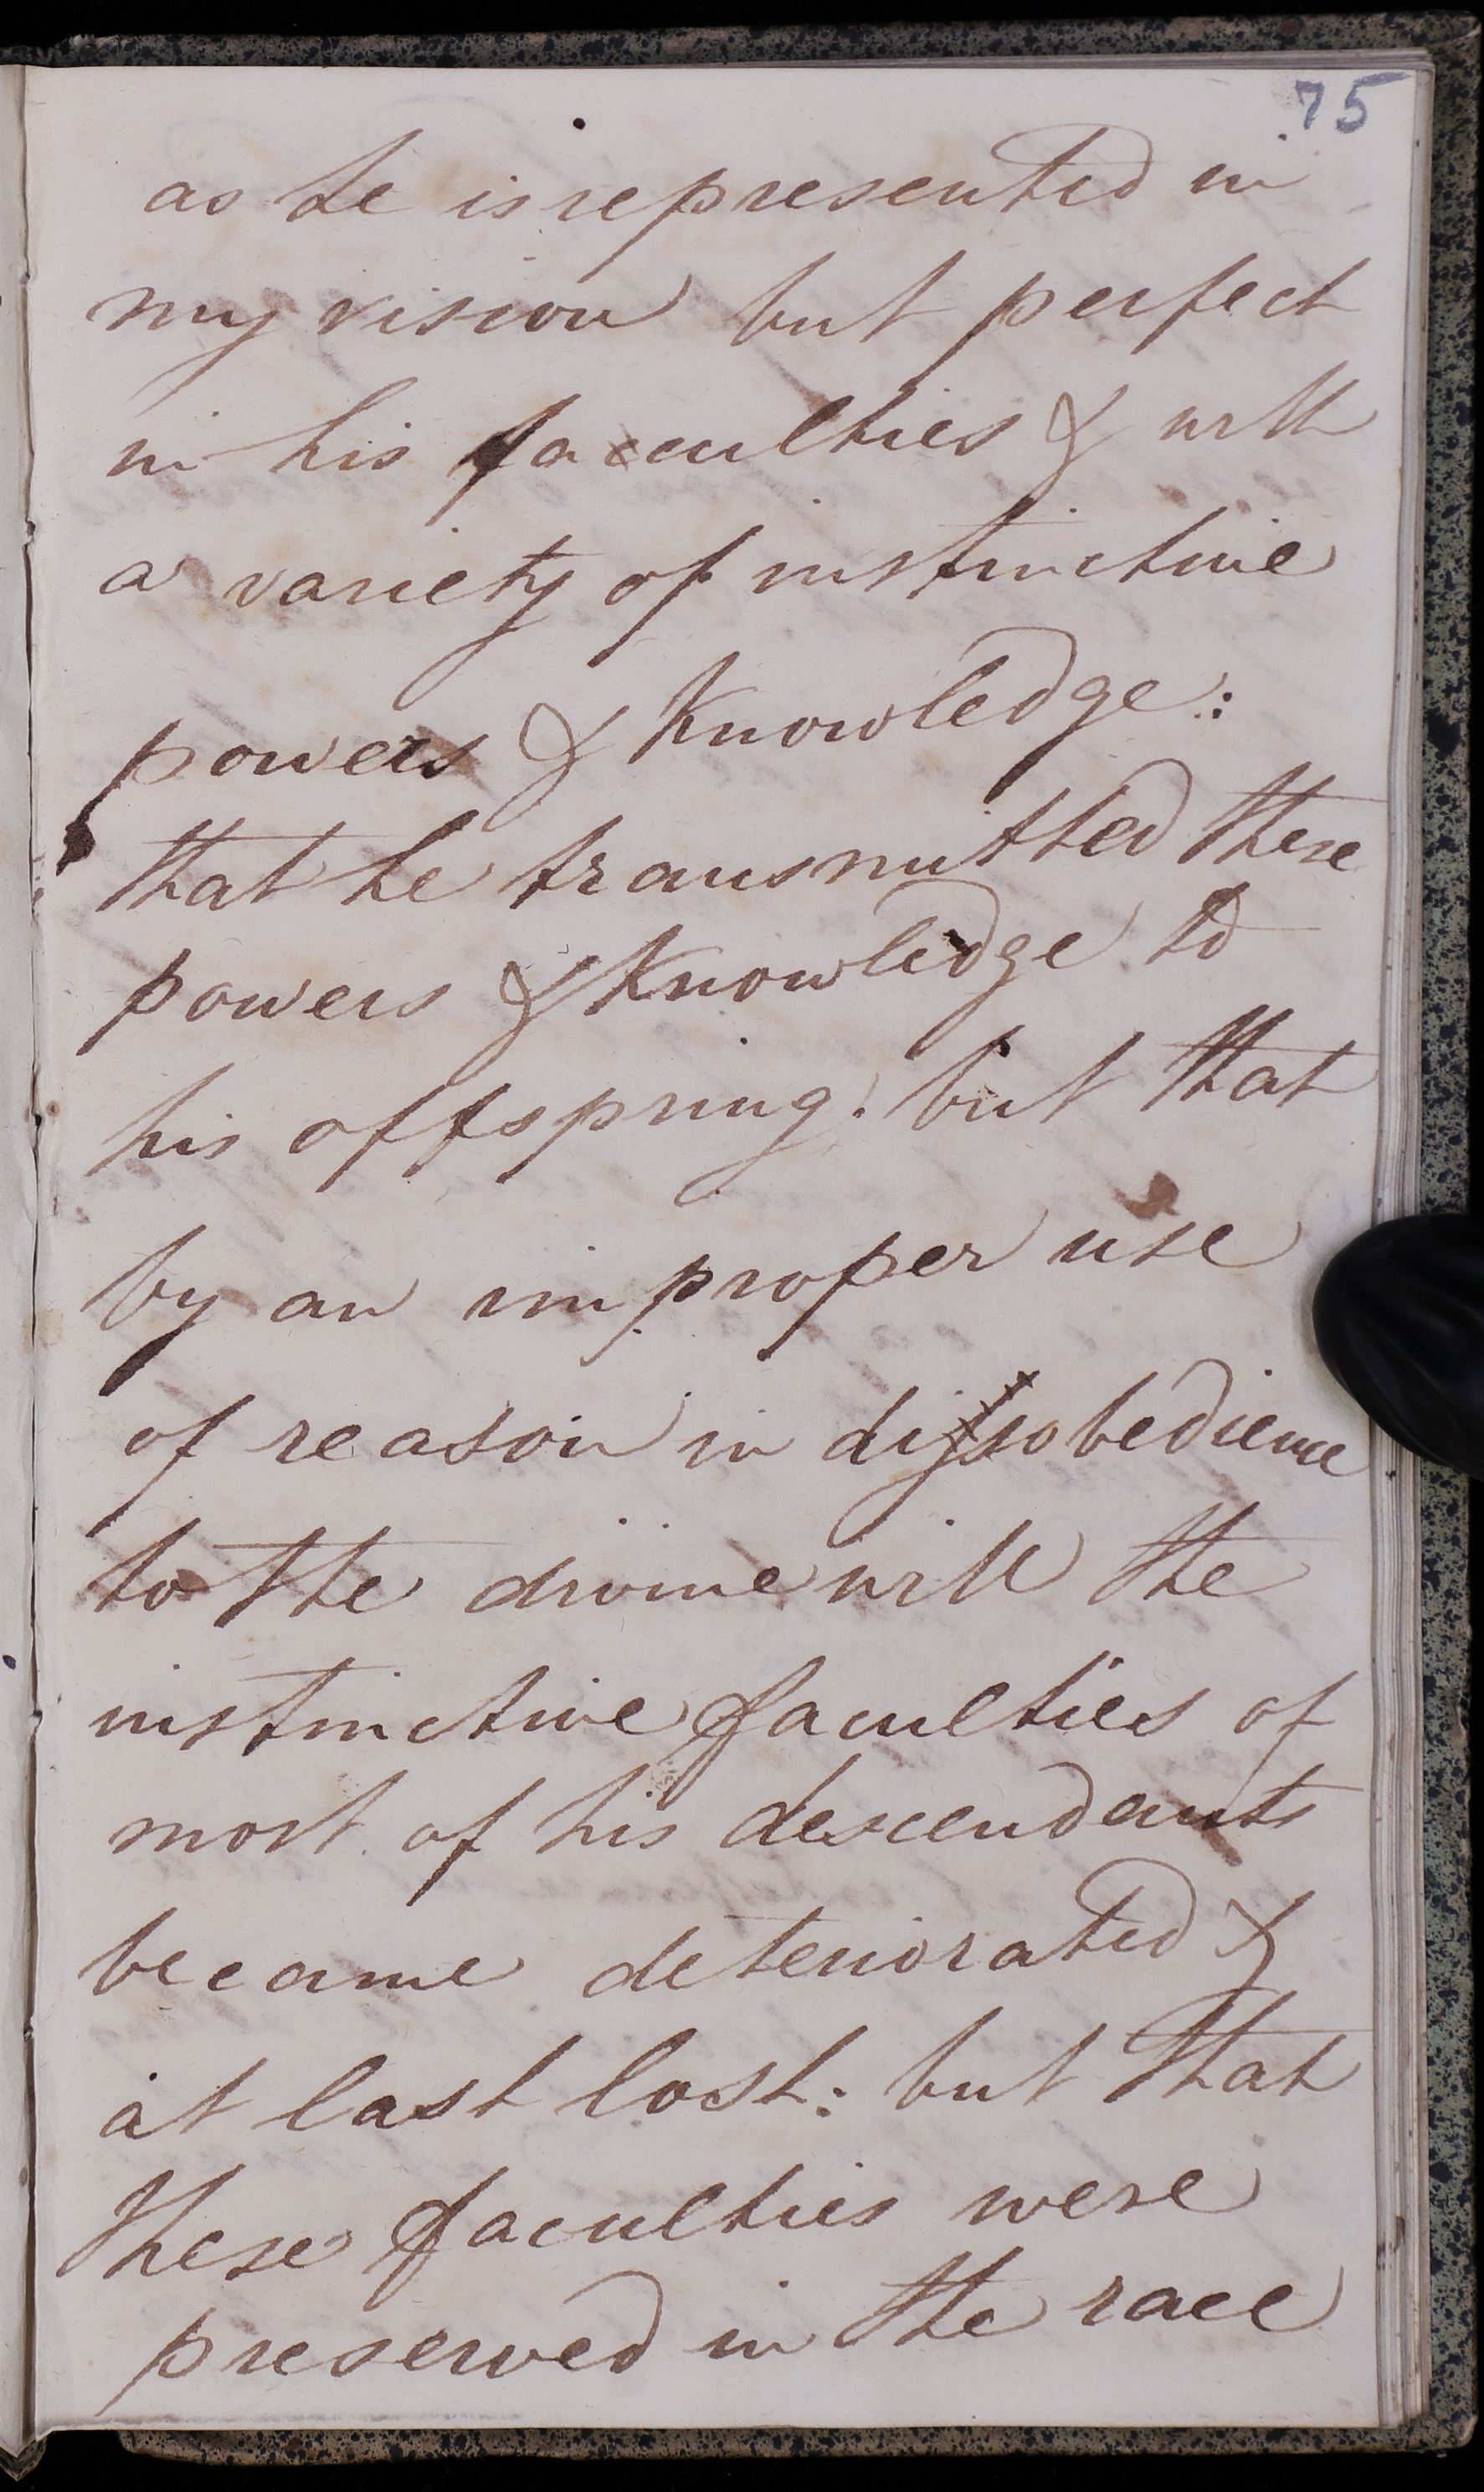 75
as he is represented in
my vision but perfect
in his faculties & with
a variety of instinctive
powers & Knowledge:
that he transmitted these
powers & Knowledge to
his offspring: but that
by an improper use
of reason in dissobedience
to the divine will the
instinctive faculties of
most of his descendants
became deteriorated &
at last lost: but that
these faculties were
preserved in the race